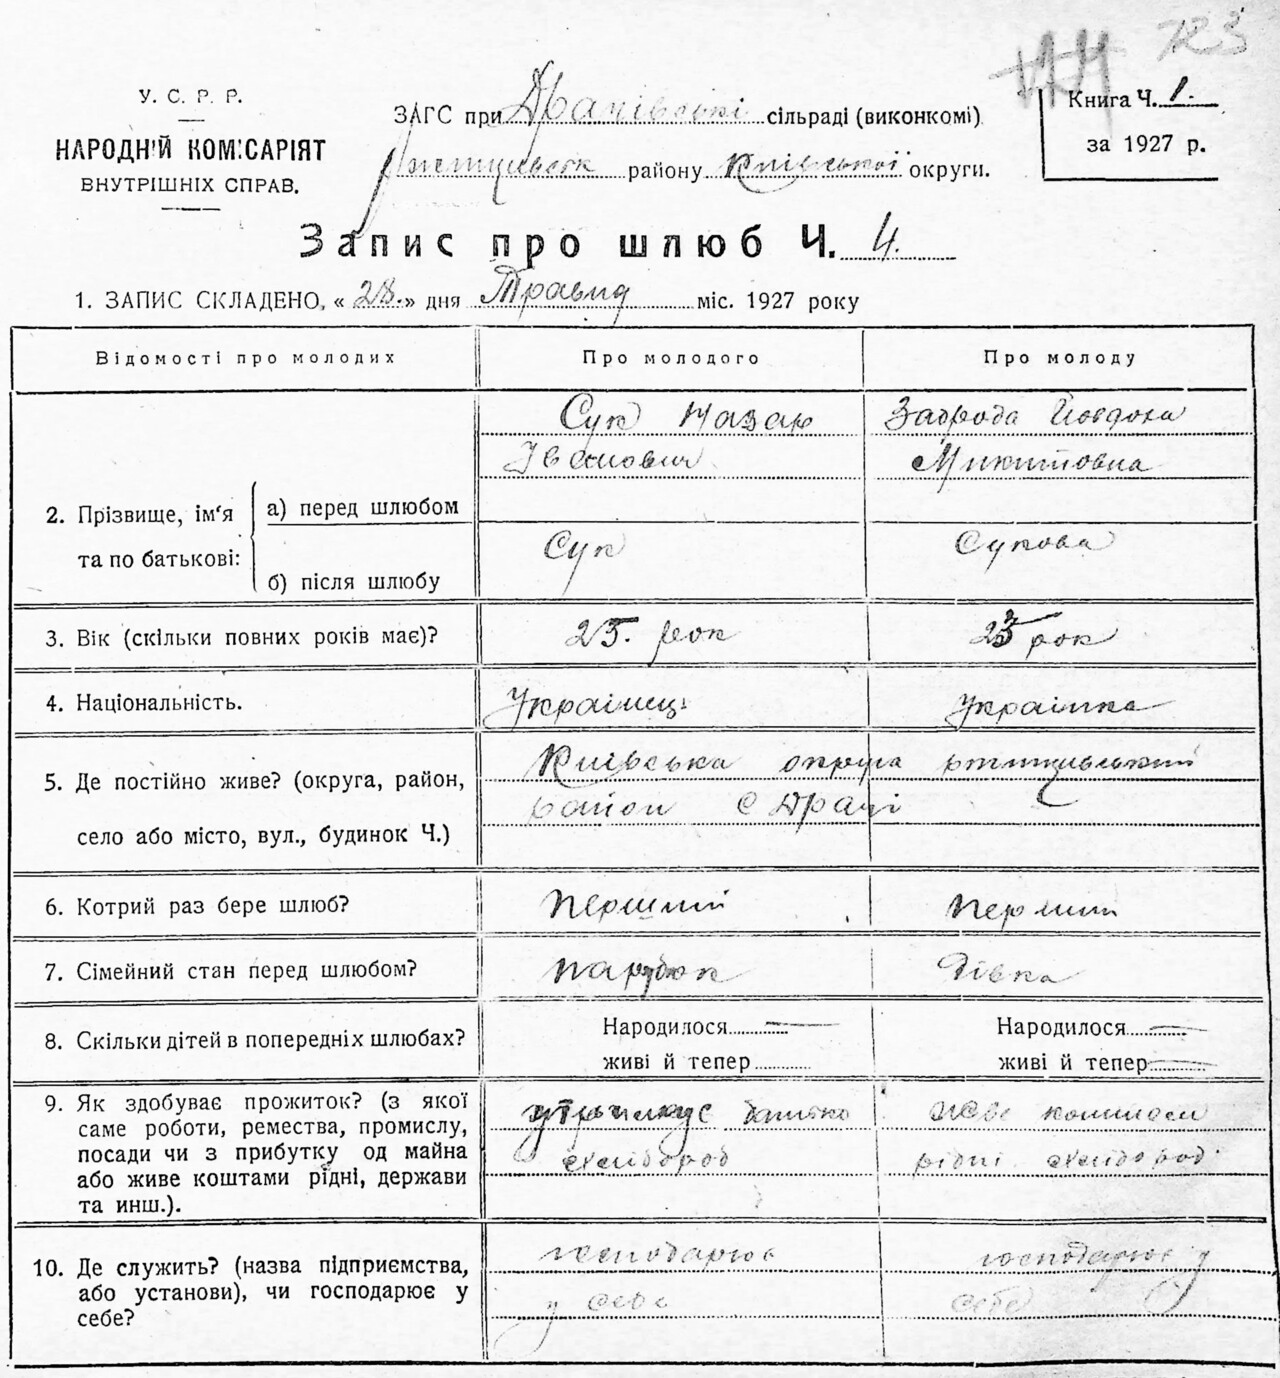 723
У. С. Р. Р.
НАРОДНІЙ КОМІСАРІЯТ
ВНУТРІШНІХ СПРАВ.
ЗАГС при Драчівські сільраді (виконкомі)
Ржищівськ району Київської округи.
Книга Ч. 1.
за 1927 р.
Запис про шлюб Ч. 4.
1. ЗАПИС СКЛАДЕНО, « 28. » дня Травид міс. 1927 року
Відомості про молодих Про молодого Про молоду
Сук Назар Задрода Йовдоха
Іванович Микитовна
2. Прізвище, ім'я та по батькові: а) перед шлюбом
б) після шлюбу Сук Сукова
3. Вік (скільки повних років має)? 25. рок 23 рок
4. Національність. Українець Українка
5. Де постійно живе? (округа, район, село або місто, вул., будинок Ч.) Київська округа ржищівський
район с Драчі
6. Котрий раз бере шлюб? перший перший
7. Сімейний стан перед шлюбом? парубок дівка
8. Скільки дітей в попередніх шлюбах? Народилося — Народилося —
живі й тепер живі й тепер —
9. Як здобуває прожиток? (з якої
саме роботи, ремества, промислу,
посади чи з прибутку од майна
або живе коштами рідні, держави
та инш.).
утримує батько
хлібороб
живе коштом
рідні хлібороб
10. Де служить? (назва підприємства,
або установи), чи господарює у
себе?
господарює
у себе
господарює у
себе